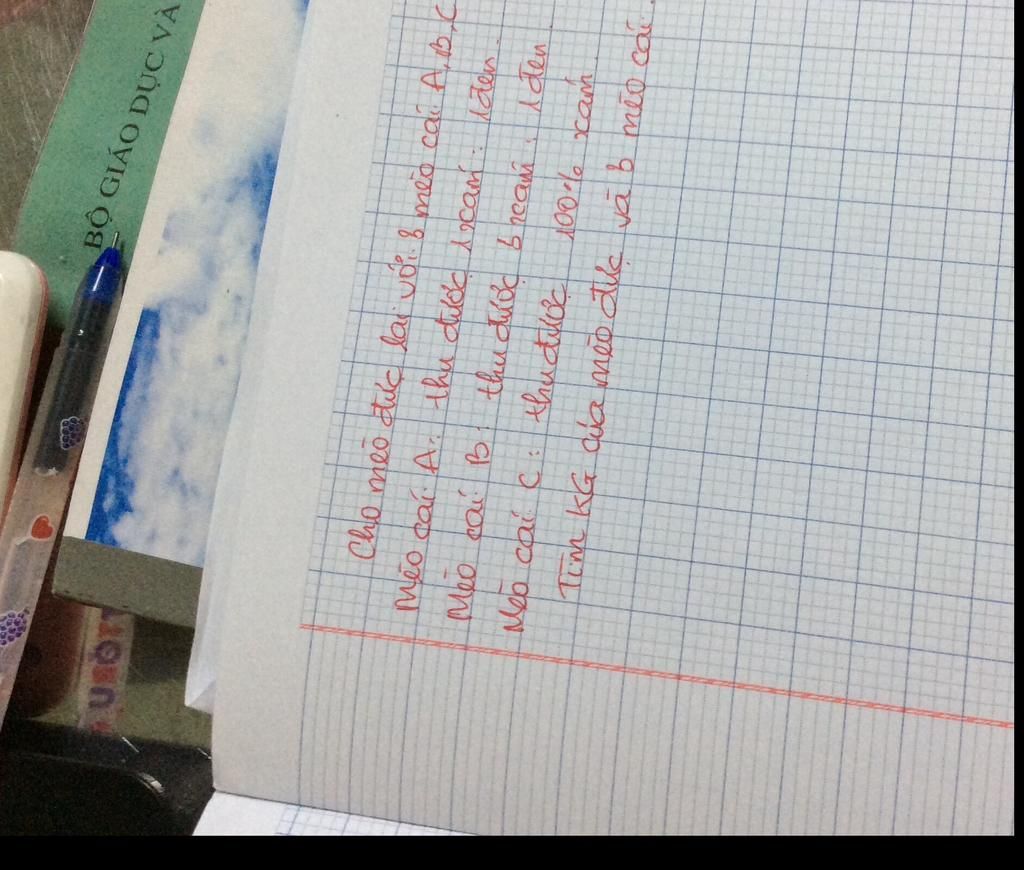 BỘ GIÁO DỤC VÀ
Cho mèo đực lai với 3 mèo cái A, B, C
Mèo cái A: thu được 1 xám : 1 đen.
Mèo cái B: thu được 3 xám : 1 đen
Mèo cái C: thu được 100% xám
Tìm KG của mèo đực và 3 mèo cái.